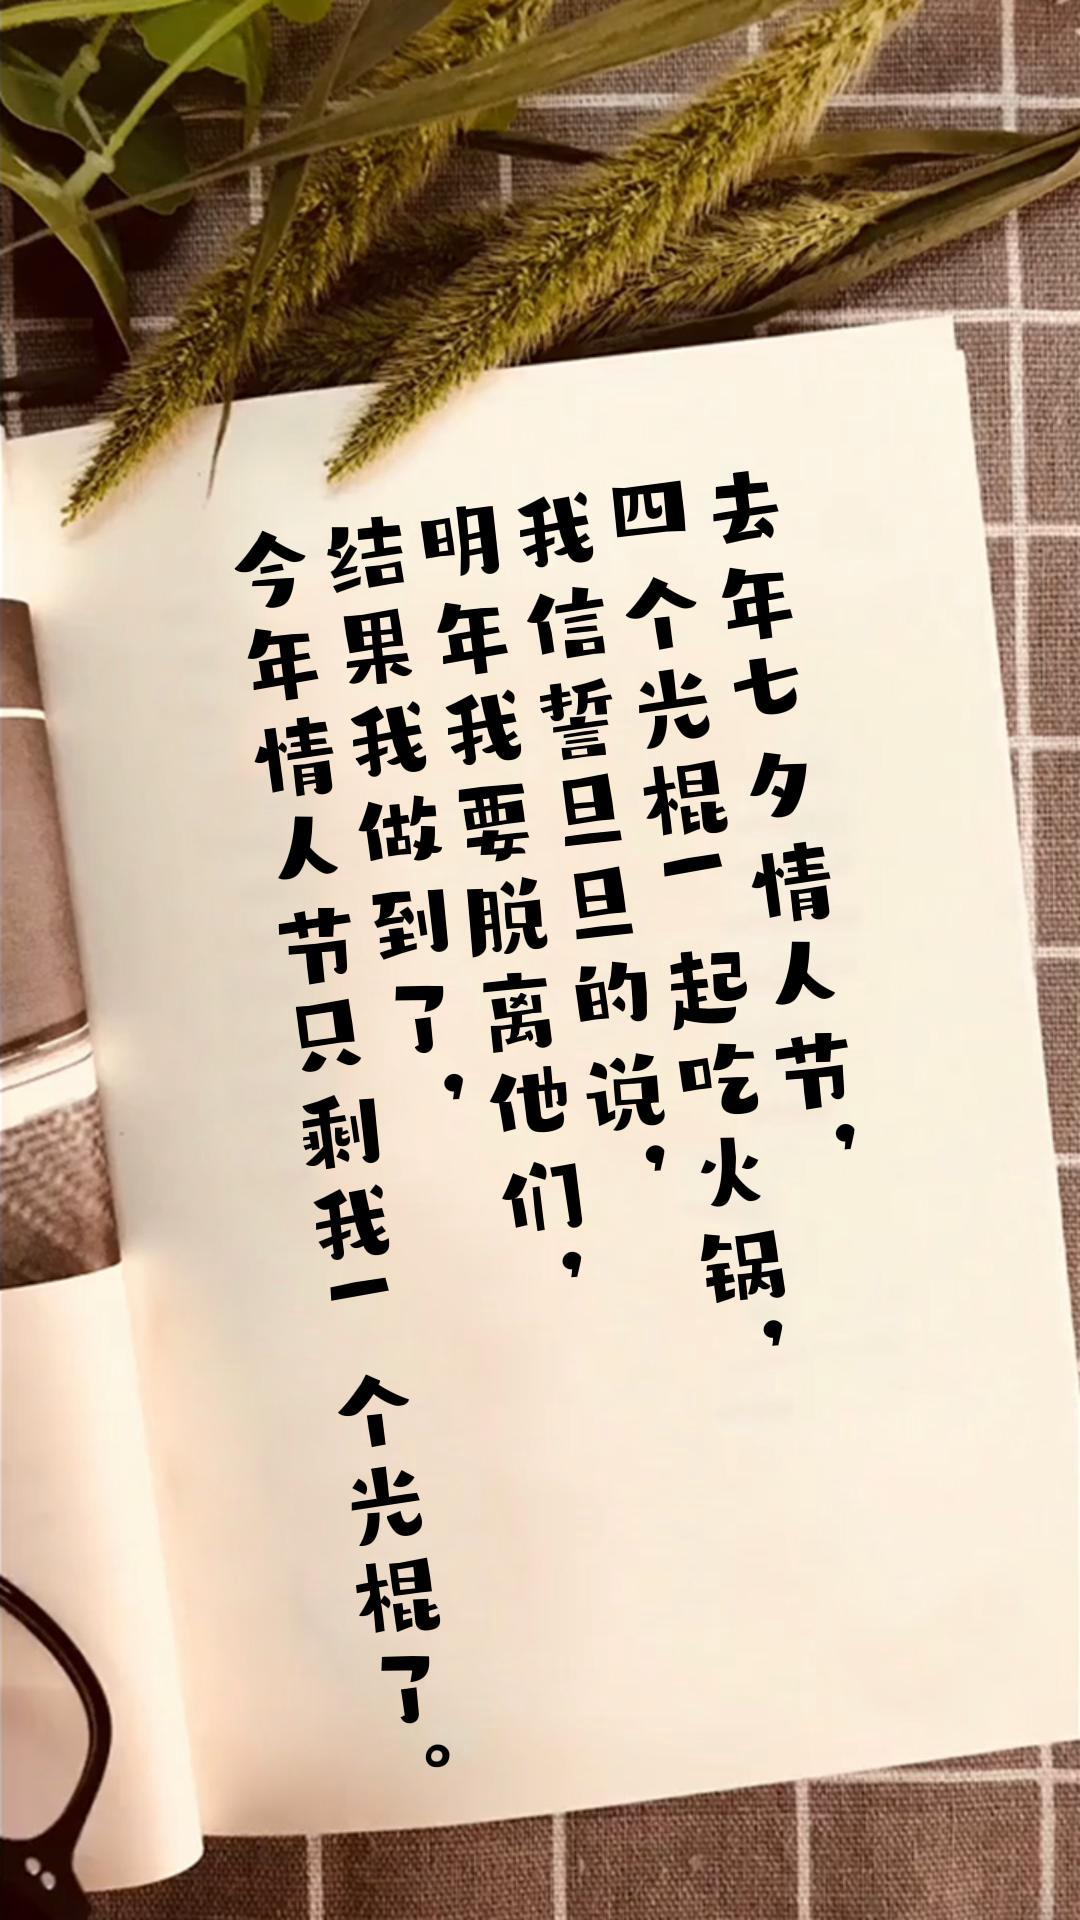 去年七夕情人节，
四个光棍一起吃火锅，
我信誓旦旦的说，
明年我要脱离他们，
结果我做到了，
今年情人节只剩我一个光棍了。